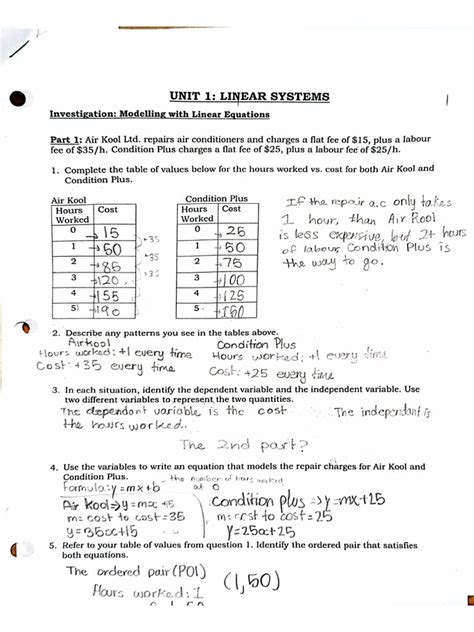 UNIT 1: LINEAR SYSTEMS
Investigation: Modelling with Linear Equations
Part 1: Air Kool Ltd. repairs air conditioners and charges a flat fee of $15, plus a labour
fee of $35/h. Condition Plus charges a flat fee of $25, plus a labour fee of $25/h.
1. Complete the table of values below for the hours worked vs. cost for both Air Kool and
Condition Plus.
Air Kool
Hours Worked Cost
0 15
1 50
2 85
3 120
4 155
5 190
+35
+35
+35
Condition Plus
Hours Worked Cost
0 25
1 50
2 75
3 100
4 125
5 150
If the repair a.c only takes
1 hour, than Air Kool
is less expensive, but 2+ hours
of labour Condition Plus is
the way to go.
2. Describe any patterns you see in the tables above.
Airkool
Hours worked: +1 every time
Cost: +35 every time
Condition Plus
Hours worked: +1 every time
Cost: +25 every time
3. In each situation, identify the dependent variable and the independent variable. Use
two different variables to represent the two quantities.
The dependant variable is the cost The independant is
the hours worked.
The 2nd part?
4. Use the variables to write an equation that models the repair charges for Air Kool and
Condition Plus.
the number of hours worked
at 0
Formula: y=mx+b
Air Kool=>y=mx+15
m= cost to cost=35
y=35x+15
Condition plus=>y=mx+25
m=cost to cost=25
y=25x+25
5. Refer to your table of values from question 1. Identify the ordered pair that satisfies
both equations.
The ordered pair(POI) (1,50)
Hours worked: 1